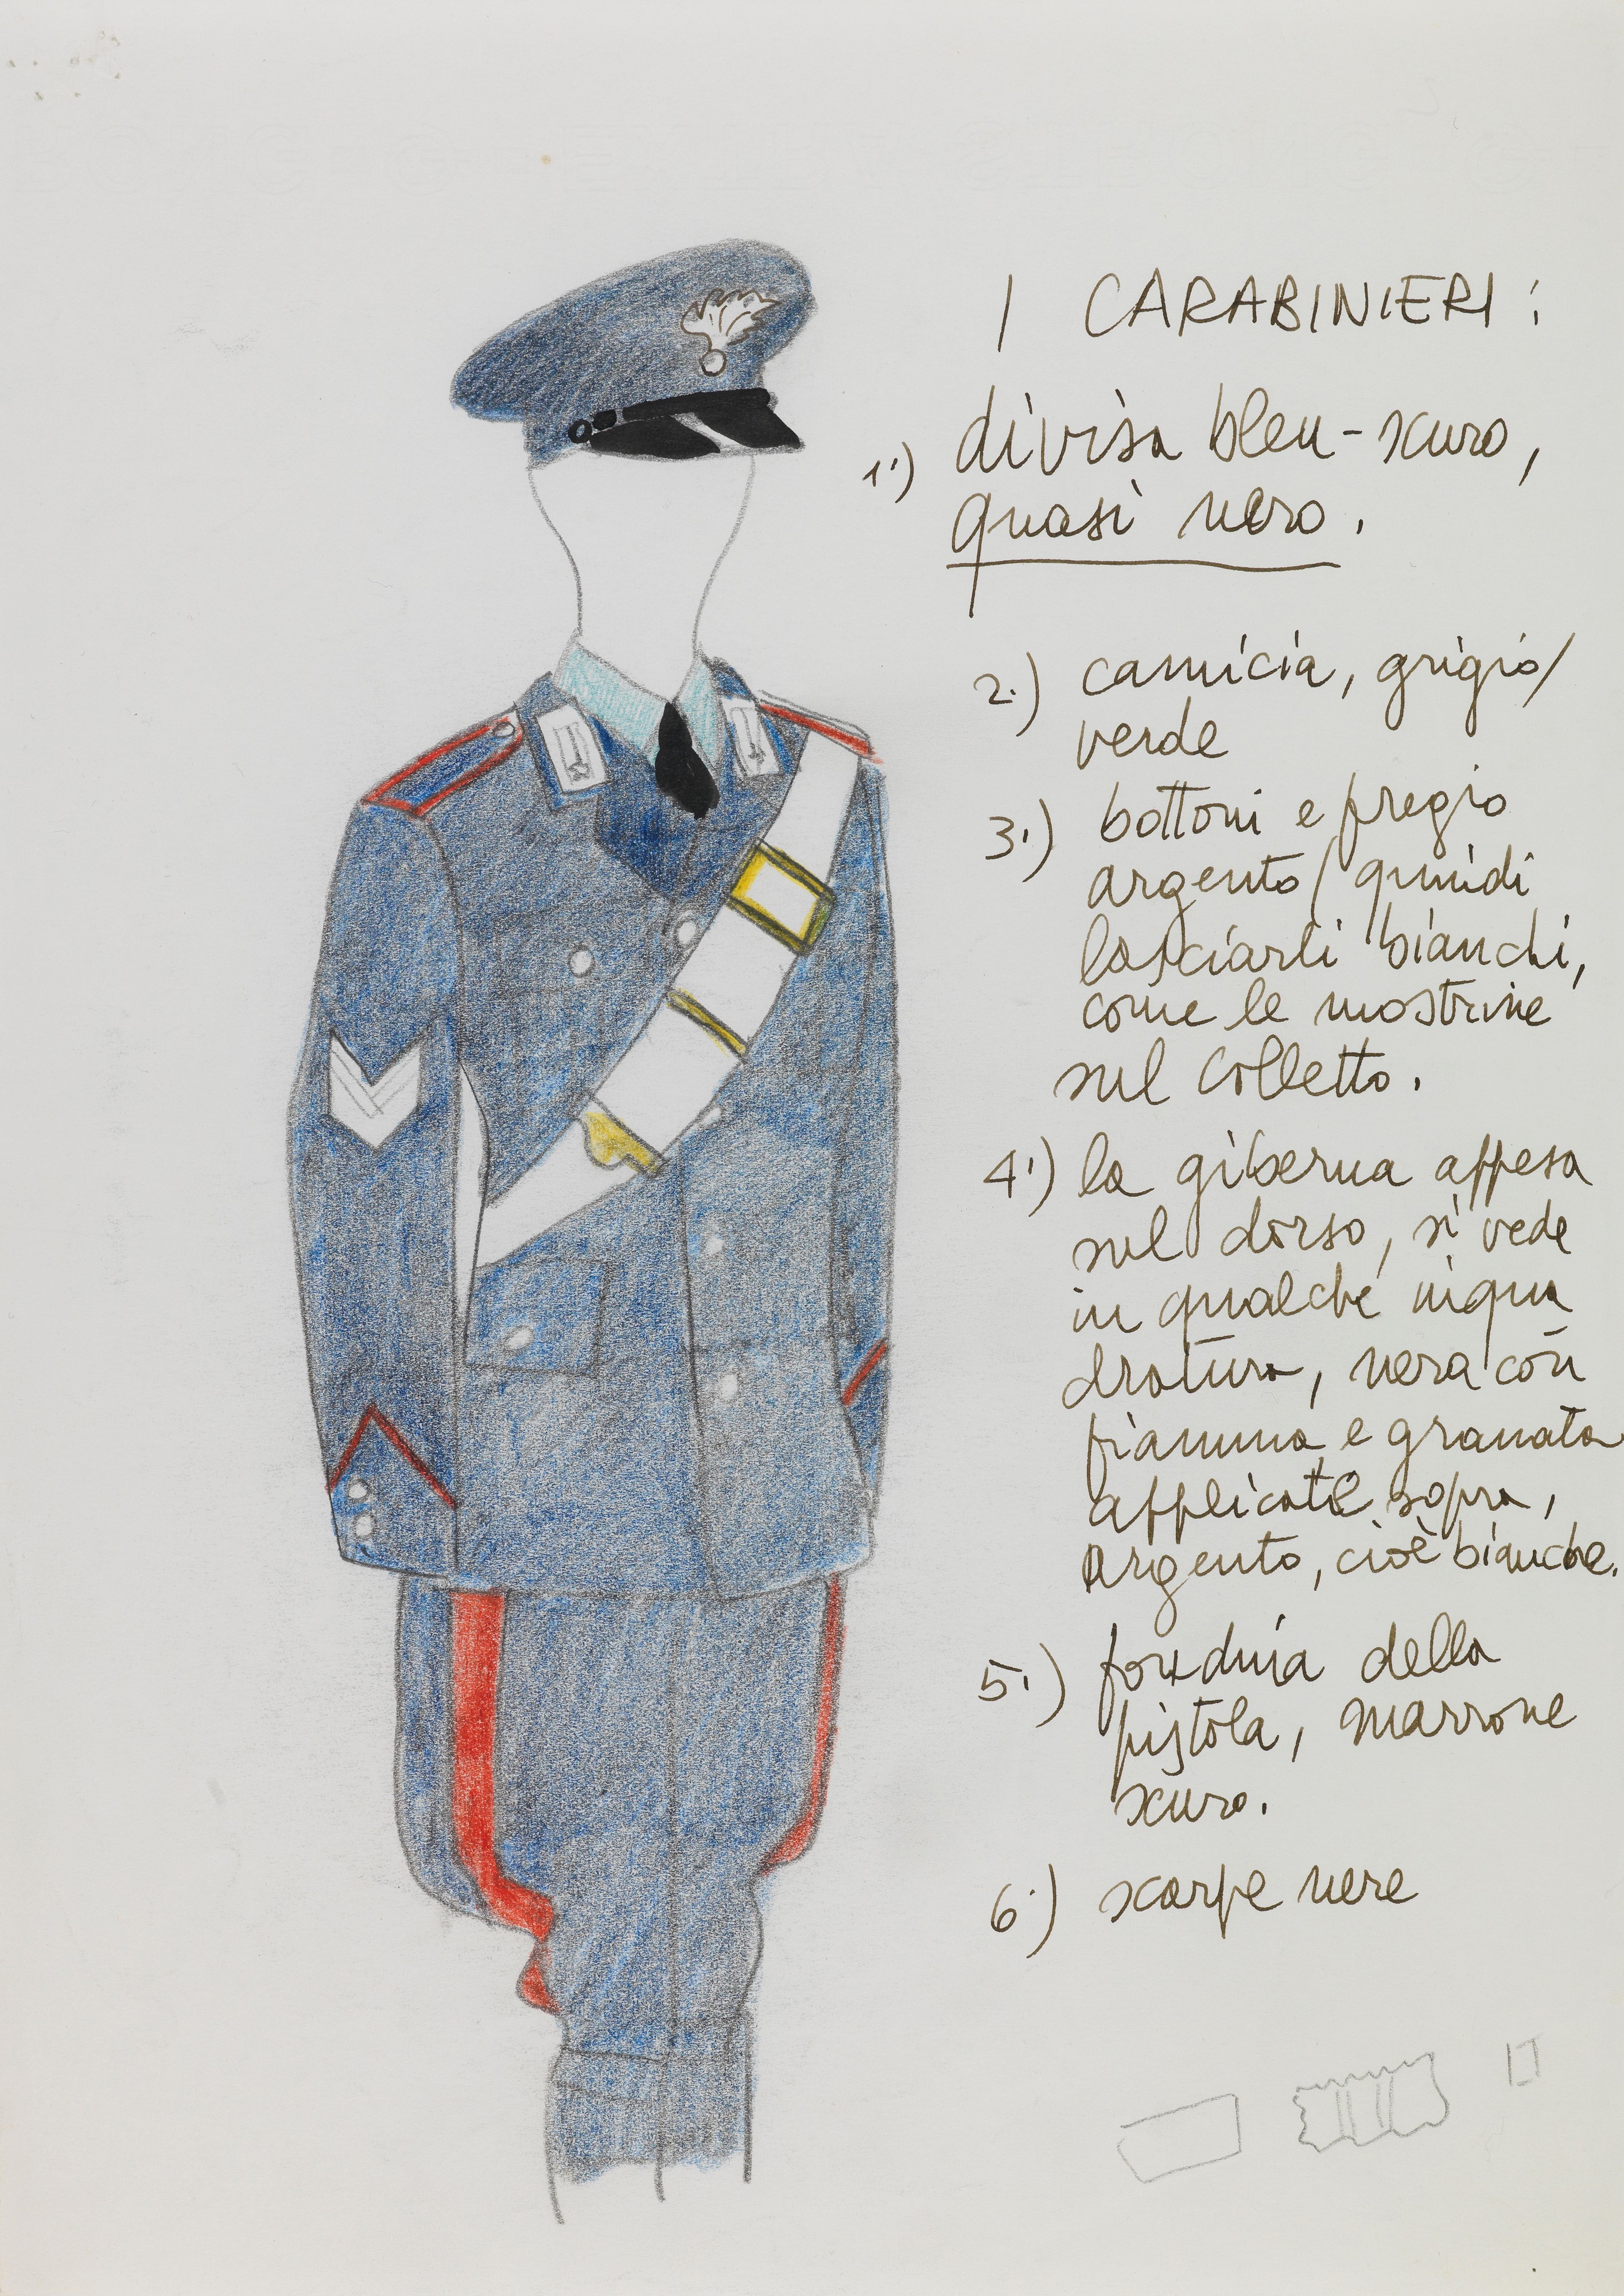 I CARABINIERI:
1°) divisa bleu-scuro,
quasi nero.
2.) camicia, grigio/
verde
3.) bottoni e fregio
argento/quindi
lasciarli bianchi,
come le mostrine
sul colletto.
4.) la giberna appesa
sul dorso, si vede
in qualche inqua
dratura, nera con
fiamma e granata
applicate sopra,
argento, cioè bianche.
5.) fondina della
pistola, marrone
scuro.
6.) scarpe nere